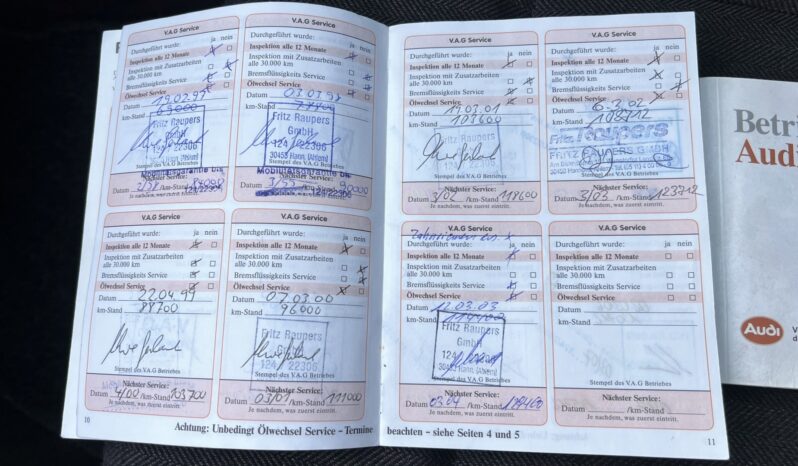 V.A.G Service
Durchgeführt wurde: ja nein
Inspektion alle 12 Monate
Inspektion mit Zusatzarbeiten
alle 30.000 km
Bremsflüssigkeits Service
Ölwechsel Service
Datum
km-Stand
Fritz Raupers
GmbH
124/22306
30453 Hann. (Ahlem)
Stempel des V.A.G Betriebes
Mobilitätsgarantie bis
Nächster Service:
Datum /km-Stand
V.A.G Service
Durchgeführt wurde: ja nein
Inspektion alle 12 Monate
Inspektion mit Zusatzarbeiten
alle 30.000 km
Bremsflüssigkeits Service
Ölwechsel Service
Datum 03.03.98
km-Stand
Fritz Raupers
GmbH
124/22306
30453 Hann. (Ahlem)
Mobilitätsgarantie bis
Datum /km-Stand 90000
Je nachdem, was zuerst eintritt.
V.A.G Service
Durchgeführt wurde: ja nein
Inspektion alle 12 Monate
Inspektion mit Zusatzarbeiten
alle 30.000 km
Bremsflüssigkeits Service
Ölwechsel Service
Datum 22.04.99
km-Stand 88700
Stempel des V.A.G Betriebes
Nächster Service:
Datum 4/00 /km-Stand 103700
Je nachdem, was zuerst eintritt.
V.A.G Service
Durchgeführt wurde: ja nein
Inspektion alle 12 Monate
Inspektion mit Zusatzarbeiten
alle 30.000 km
Bremsflüssigkeits Service
Ölwechsel Service
Datum 07.03.00
km-Stand 96000
Fritz Raupers
GmbH
124/22306
Stempel des V.A.G Betriebes
Nächster Service:
Datum 03/01 /km-Stand 111000
Je nachdem, was zuerst eintritt.
10
Achtung: Unbedingt Ölwechsel Service - Termine
V.A.G Service
Durchgeführt wurde: ja nein
Inspektion alle 12 Monate
Inspektion mit Zusatzarbeiten
alle 30.000 km
Bremsflüssigkeits Service
Ölwechsel Service
Datum 19.03.01
km-Stand 103600
Fritz Raupers
GmbH
124/22306
30453 Hann. (Ahlem)
Stempel des V.A.G Betriebes
Nächster Service:
Datum 3/02 /km-Stand 118600
Je nachdem, was zuerst eintritt.
V.A.G Service
Durchgeführt wurde: ja nein
Inspektion alle 12 Monate
Inspektion mit Zusatzarbeiten
alle 30.000 km
Bremsflüssigkeits Service
Ölwechsel Service
Datum 6.3.02
km-Stand 108712
Fritz Raupers
FRITZ RAUPERS GMBH
Nächster Service:
Datum 3/03 /km-Stand 123712
Je nachdem, was zuerst eintritt.
V.A.G Service
Durchgeführt wurde: ja nein
Inspektion alle 12 Monate
Inspektion mit Zusatzarbeiten
alle 30.000 km
Bremsflüssigkeits Service
Ölwechsel Service
Datum 12.03.03
km-Stand 114400
Fritz Raupers
GmbH
124/22306
30453 Hann. (Ahlem)
Stempel des V.A.G Betriebes
Nächster Service:
Datum 03.04 /km-Stand 129400
Je nachdem, was zuerst eintritt.
V.A.G Service
Durchgeführt wurde: ja nein
Inspektion alle 12 Monate
Inspektion mit Zusatzarbeiten
alle 30.000 km
Bremsflüssigkeits Service
Ölwechsel Service
Datum
km-Stand
Stempel des V.A.G Betriebes
Nächster Service:
Datum /km-Stand
Je nachdem, was zuerst eintritt.
beachten - siehe Seiten 4 und 5
11
Betri
Audi
Audi
V
d